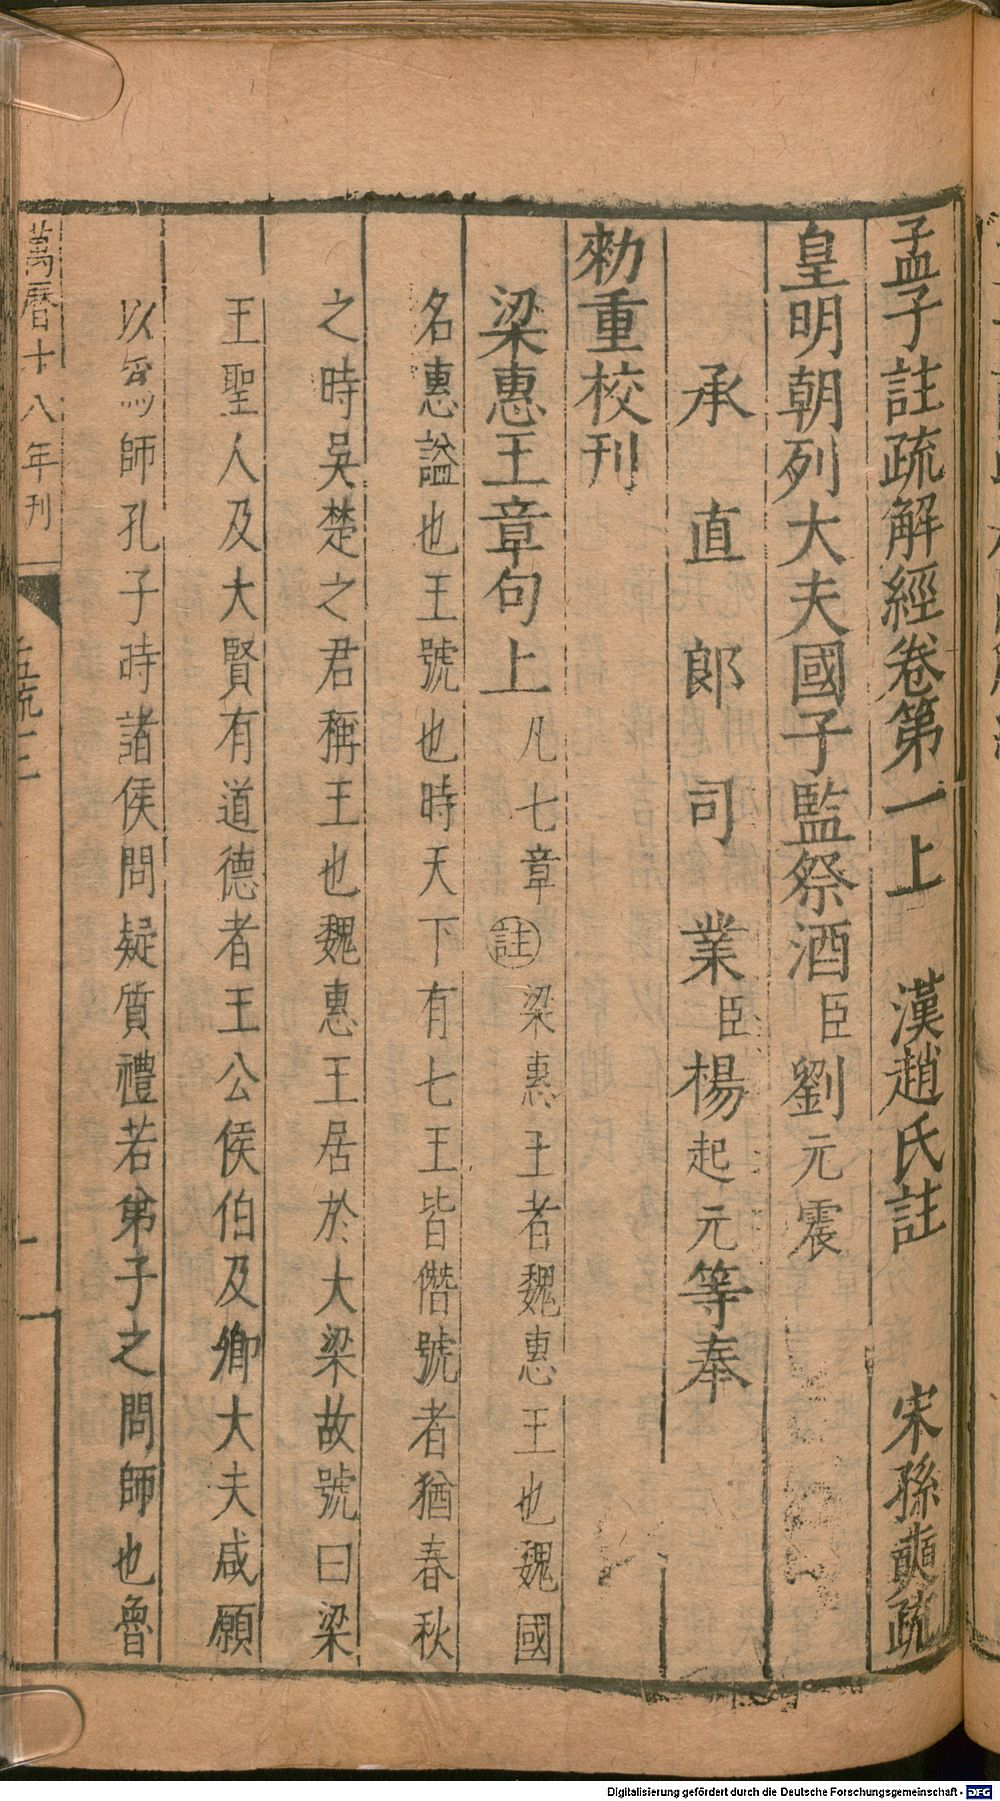 孟子註疏解經卷第一上 漢趙氏註 宋孫奭疏
皇明朝列大夫國子監祭酒臣劉元震
承直郎司業臣楊起元等奉
勑重校刊
梁惠王章句上 凡七章 註 梁惠王者魏惠王也魏國
名惠謚也王號也時天下有七王皆僭號者猶春秋
之時吳楚之君稱王也魏惠王居於大梁故號曰梁
王聖人及大賢有道德者王公侯伯及卿大夫咸願
以爲師孔子時諸侯問疑質禮若弟子之問師也魯
萬曆十八年刊
Digitalisierung gefördert durch die Deutsche Forschungsgemeinschaft - DFG